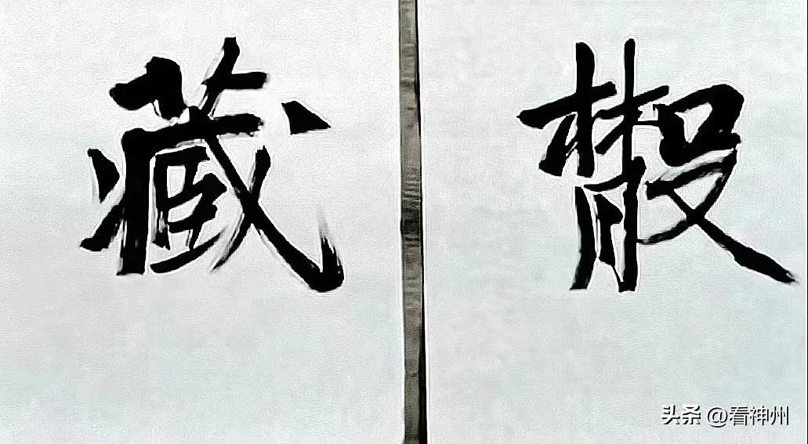 藏
头条 @看神州